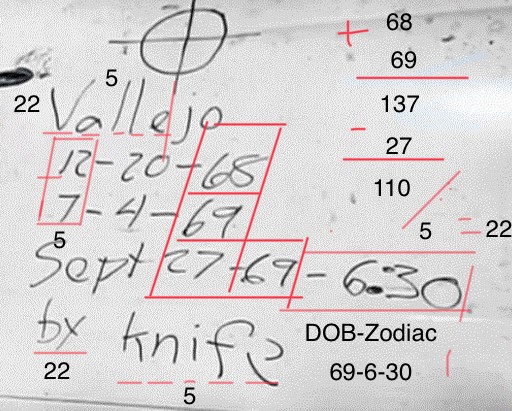 68
69
5
22 Vallejo
137
12-20-68
27
7-4-69
110
5
22
5
Sept 27-69-6:30
by knife
DOB-Zodiac
22
69-6-30
5